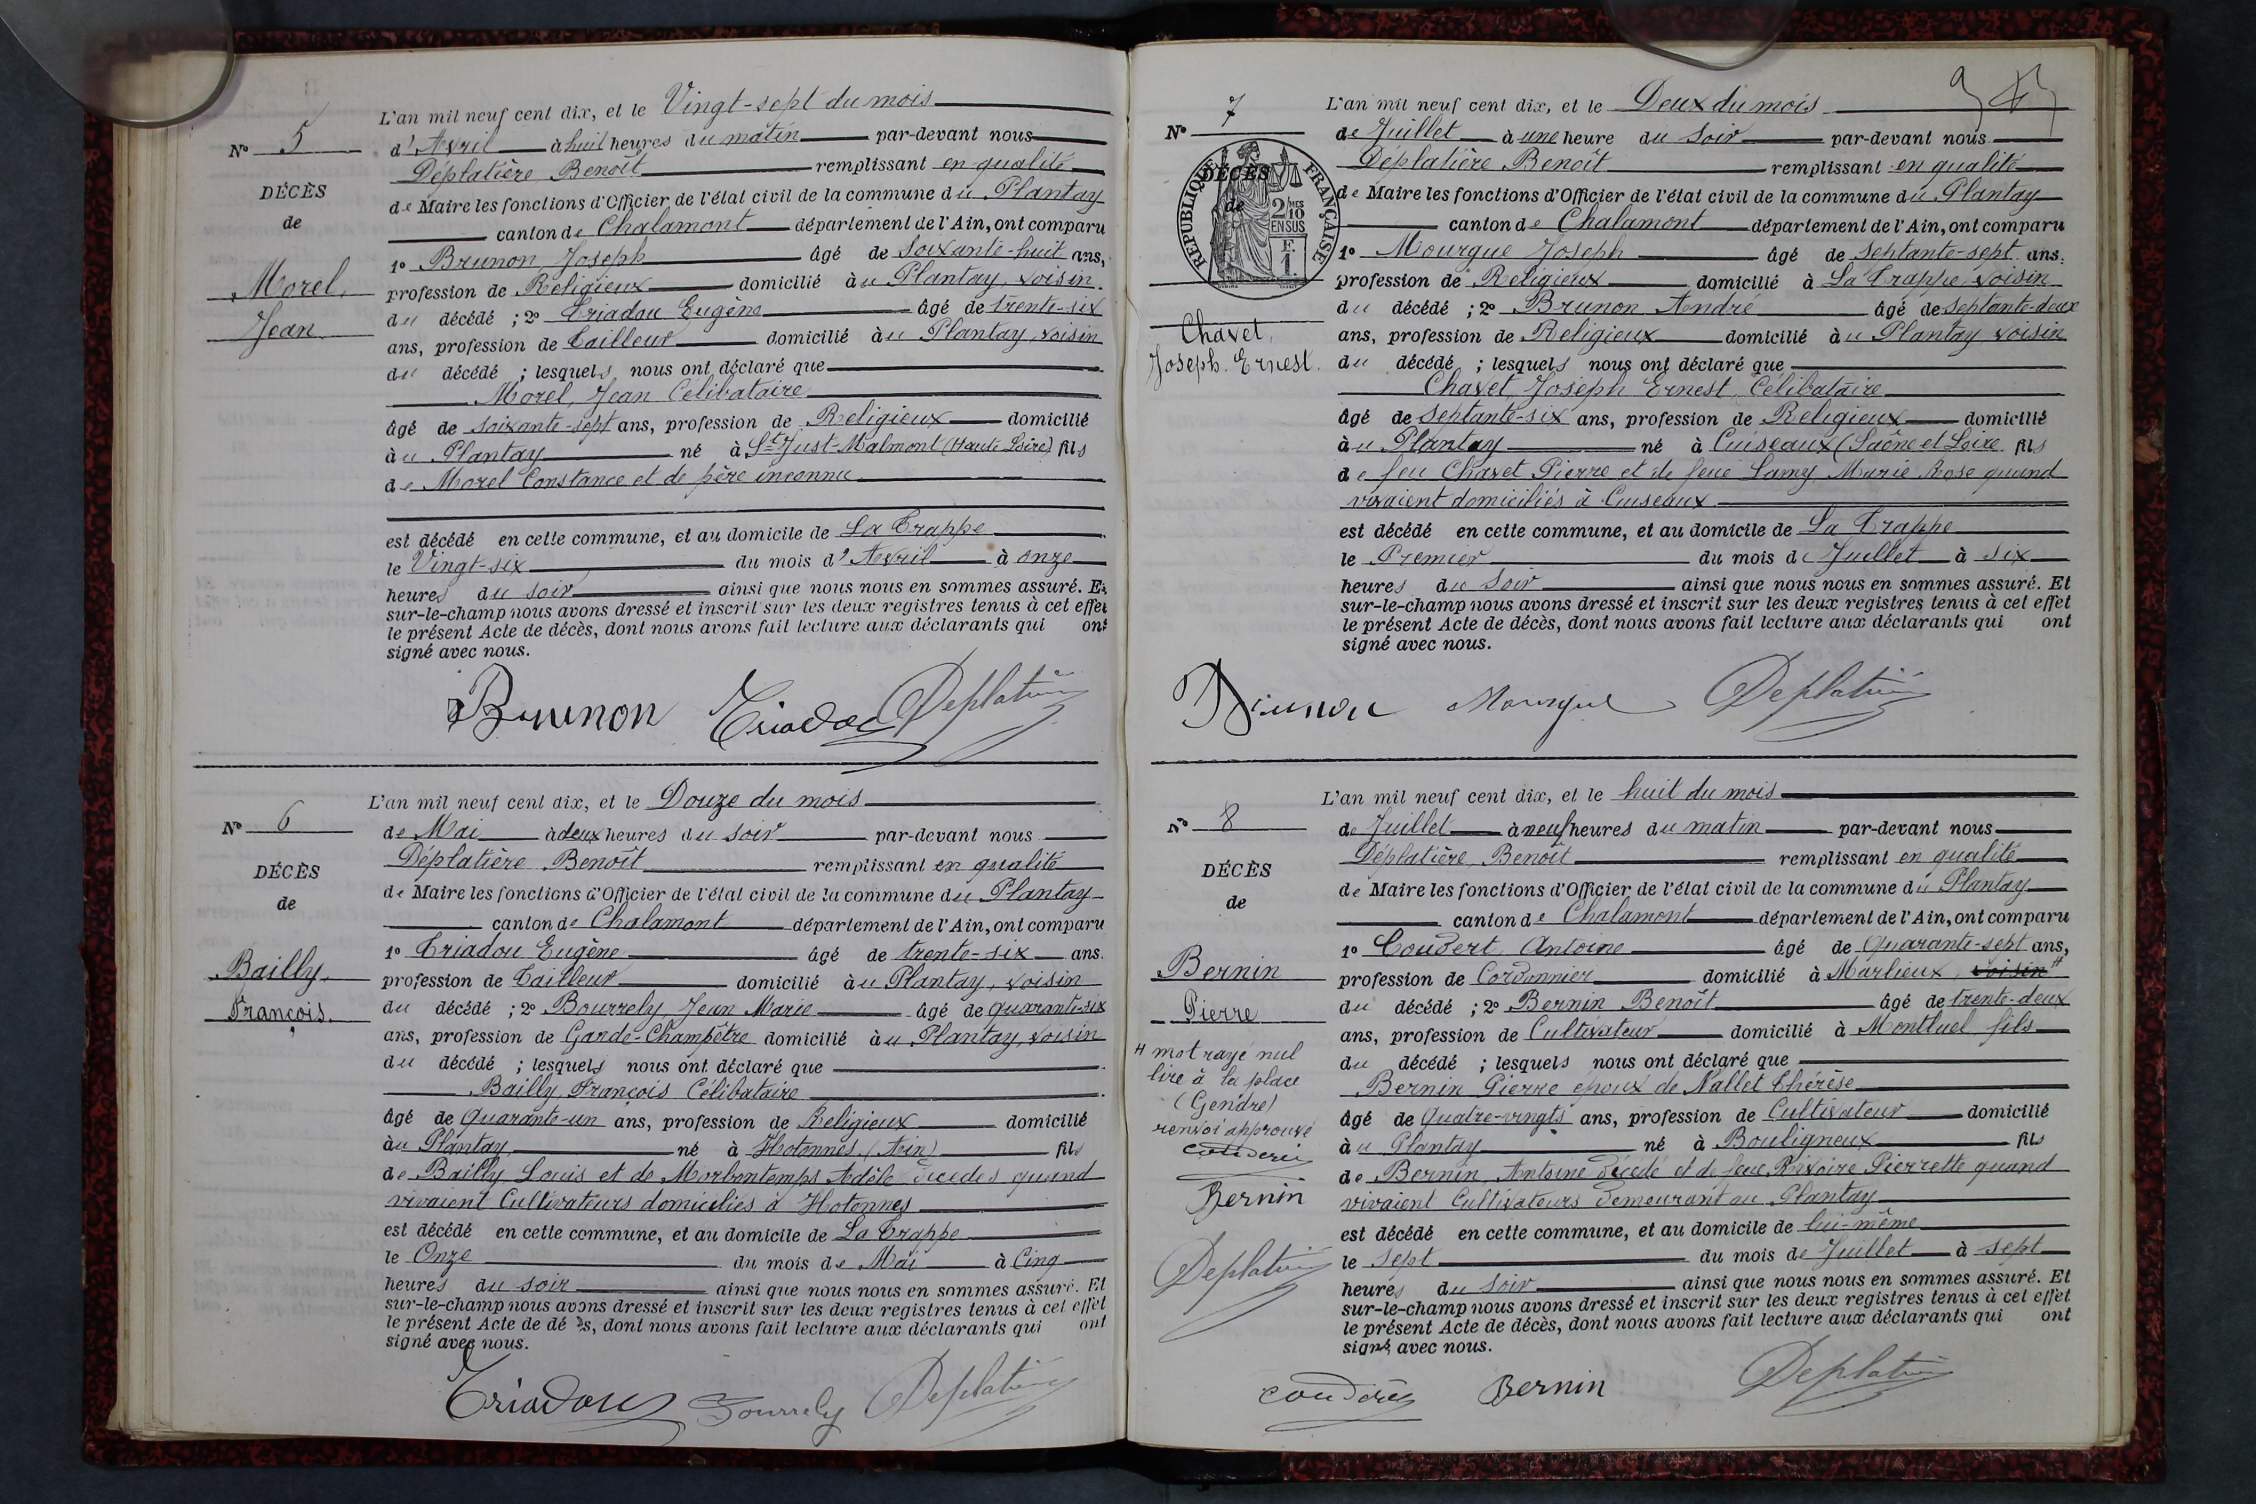 N° 5
DÉCÈS
de
Morel,
Jean
L'an mil neuf cent dix, et le Vingt-sept du mois
d'Avril à huit heures du matin par-devant nous
Déplatière Benoît remplissant en qualité
de Maire les fonctions d'Officier de l'état civil de la commune du Plantay
canton de Chalamont département de l'Ain, ont comparu
1° Brunon Joseph âgé de soixante-huit ans,
profession de Religieux domicilié au Plantay, voisin
du décédé ; 2° Criadou Eugène âgé de trente-six
ans, profession de Tailleur domicilié au Plantay, voisin
du décédé ; lesquels nous ont déclaré que
Morel, Jean Célibataire
âgé de soixante-sept ans, profession de Religieux domicilié
au Plantay né à St Just-Malmont (Haute Loire) fils
de Morel Constance et de père inconnu
est décédé en cette commune, et au domicile de La Trappe
le Vingt-six du mois d'Avril à onze
heures du soir ainsi que nous nous en sommes assuré. Et
sur-le-champ nous avons dressé et inscrit sur les deux registres tenus à cet effet
le présent Acte de décès, dont nous avons fait lecture aux déclarants qui ont
signé avec nous.
Brunon Criadou Deplatière
N° 6
DÉCÈS
de
Bailly,
François.
L'an mil neuf cent dix, et le Douze du mois
de Mai à deux heures du soir par-devant nous
Déplatière Benoît remplissant en qualité
de Maire les fonctions d'Officier de l'état civil de la commune du Plantay
canton de Chalamont département de l'Ain, ont comparu
1° Criadou Eugène âgé de trente-six ans.
profession de Tailleur domicilié au Plantay, voisin
du décédé ; 2° Bourrely, Jean Marie âgé de quarante-six
ans, profession de Garde-Champêtre domicilié au Plantay, voisin
du décédé ; lesquels nous ont déclaré que
Bailly François Célibataire
âgé de quarante-un ans, profession de Religieux domicilié
au Plantay né à Hotonnes (Ain) fils
de Bailly Louis et de Morbontemps Adèle décédés quand
vivaient Cultivateurs domiciliés à Hotonnes
est décédé en cette commune, et au domicile de La Trappe
le Onze du mois de Mai à Cinq
heures du soir ainsi que nous nous en sommes assuré. Et
sur-le-champ nous avons dressé et inscrit sur les deux registres tenus à cet effet
le présent Acte de décès, dont nous avons fait lecture aux déclarants qui ont
signé avec nous.
Criadou Bourrely Deplatière
N° 7
RÉPUBLIQUE FRANÇAISE
2/10 MES
EN SUS
F
1.
DÉCÈS
de
Chavet,
Joseph. Ernest.
L'an mil neuf cent dix, et le Deux du mois
de Juillet à une heure du soir par-devant nous
Déplatière Benoît remplissant en qualité
de Maire les fonctions d'Officier de l'état civil de la commune du Plantay
canton de Chalamont département de l'Ain, ont comparu
1° Mourgue Joseph âgé de septante-sept ans.
profession de Religieux domicilié à La Trappe, voisin
du décédé ; 2° Brunon André âgé de septante-deux
ans, profession de Religieux domicilié au Plantay voisin
du décédé ; lesquels nous ont déclaré que
Chavet, Joseph Ernest Célibataire
âgé de septante-six ans, profession de Religieux domicilié
au Plantay né à Cuiseaux (Saône et Loire fils
de feu Chavet Pierre et de feue Lamy Marie Rose quand
vivaient domiciliés à Cuiseaux
est décédé en cette commune, et au domicile de La Trappe
le Premier du mois de Juillet à six
heures du soir ainsi que nous nous en sommes assuré. Et
sur-le-champ nous avons dressé et inscrit sur les deux registres tenus à cet effet
le présent Acte de décès, dont nous avons fait lecture aux déclarants qui ont
signé avec nous.
Brunon Mourgue Deplatière
N° 8
DÉCÈS
de
Bernin
Pierre
# mot rayé nul
lire à la place
(Gendre)
renvoi approuvé
Couderc
Bernin
Deplatière
L'an mil neuf cent dix, et le huit du mois
de Juillet à neuf heures du matin par-devant nous
Déplatière Benoît remplissant en qualité
de Maire les fonctions d'Officier de l'état civil de la commune du Plantay
canton de Chalamont département de l'Ain, ont comparu
1° Coudert Antoine âgé de quarante-sept ans,
profession de Cordonnier domicilié à Marlieux, voisin #
du décédé ; 2° Bernin Benoît âgé de trente-deux
ans, profession de Cultivateur domicilié à Montluel fils
du décédé ; lesquels nous ont déclaré que
Bernin Pierre époux de Nallet Thérèse
âgé de quatre-vingts ans, profession de Cultivateur domicilié
au Plantay né à Bouligneux fils
de Bernin Antoine décédé et de feue Rivoire Pierrette quand
vivaient Cultivateurs demeurant au Plantay
est décédé en cette commune, et au domicile de lui-même
le sept du mois de Juillet à sept
heures du soir ainsi que nous nous en sommes assuré. Et
sur-le-champ nous avons dressé et inscrit sur les deux registres tenus à cet effet
le présent Acte de décès, dont nous avons fait lecture aux déclarants qui ont
signé avec nous.
Couderc Bernin Deplatière